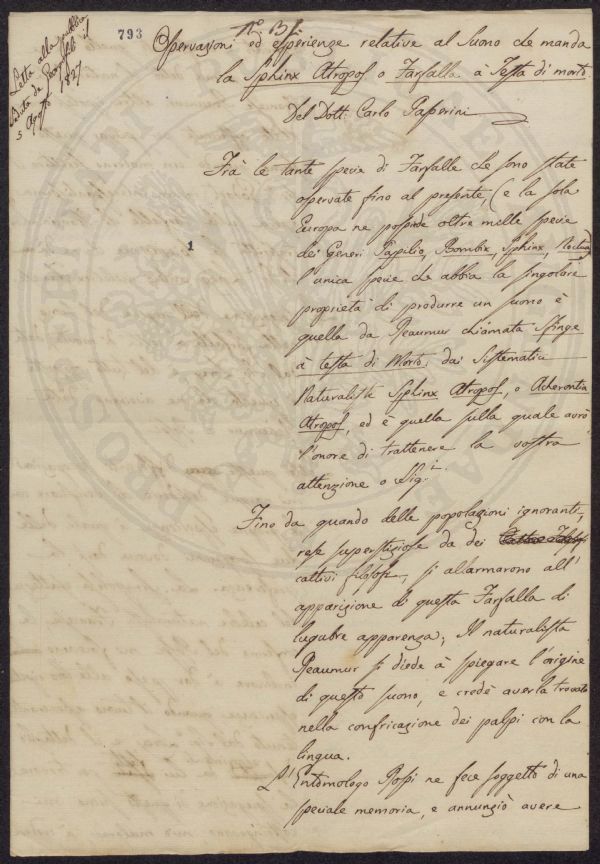 N.º 31.
793
Letta alla pubblica
seduta de' Georgofili il
5 Agosto 1827
Osservazioni ed esperienze relative al Suono che manda
la Sphinx Atropos o Farfalla à Testa di morto.
Del Dott: Carlo Passerini
Frà le tante specie di Farfalle che sono state
osservate fino al presente, (e la sola
Europa ne possiede oltre mille specie
dei Generi Papilio, Bombix, Sphinx, Noctua)
1
l'unica specie che abbia la singolare
proprietà di produrre un suono è
quella da Reaumur chiamata Sfinge
à testa di Morto, dai Sistematici
Naturalisti Sphinx Atropos, o Acherontia
Atropos, ed è quella sulla quale avrò
l'onore di trattenere la vostra
attenzione o Sig.i
Fino da quando delle popolazioni ignoranti,
rese superstiziose da dei
cattivi filosofi, si allarmarono all'
apparizione di questa Farfalla di
lugubre apparenza; Il naturalista
Reaumur si diede à spiegare l'origine
di questo suono, e credè averla trovata
nella confricazione dei palpi con la
lingua.
L'Entomologo Rossi ne fece soggetto di una
speciale memoria, e annunziò avere